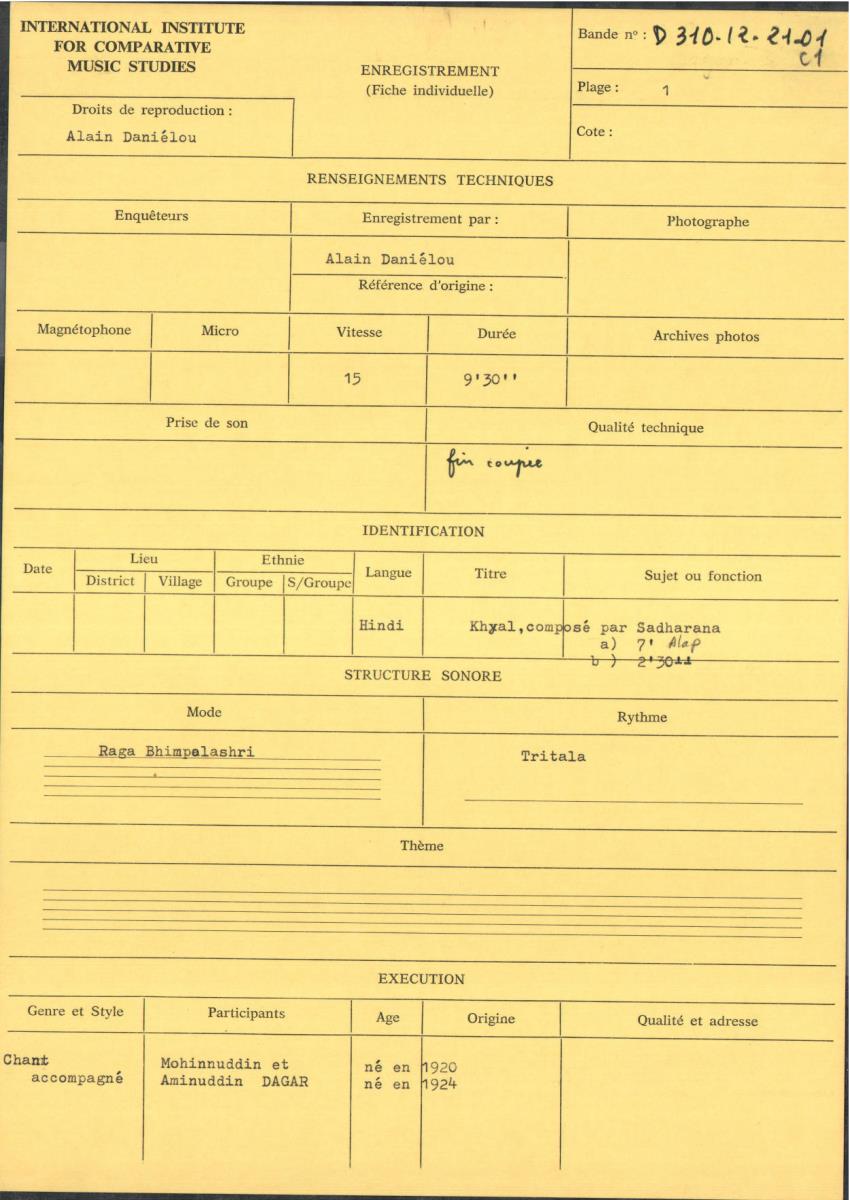 INTERNATIONAL INSTITUTE
FOR COMPARATIVE
MUSIC STUDIES
Droits de reproduction :
Alain Daniélou
ENREGISTREMENT
(Fiche individuelle)
Bande nº : D 310-12-21-01
C1
Plage : 1
Cote :
RENSEIGNEMENTS TECHNIQUES
Enquêteurs
Enregistrement par :
Photographe
Alain Daniélou
Référence d'origine :
Magnétophone
Micro
Vitesse
Durée
Archives photos
15
9'30''
Prise de son
Qualité technique
fin coupée
IDENTIFICATION
Date
Lieu
Ethnie
Langue
Titre
Sujet ou fonction
District
Village
Groupe
S/Groupe
Hindi
Khyal,composé par Sadharana
a) 7' Alap
b ) 2'30"
STRUCTURE SONORE
Mode
Rythme
Raga Bhimpalashri
Tritala
Thème
EXECUTION
Genre et Style
Participants
Age
Origine
Qualité et adresse
Chant
accompagné
Mohinnuddin et
Aminuddin DAGAR
né en 1920
né en 1924